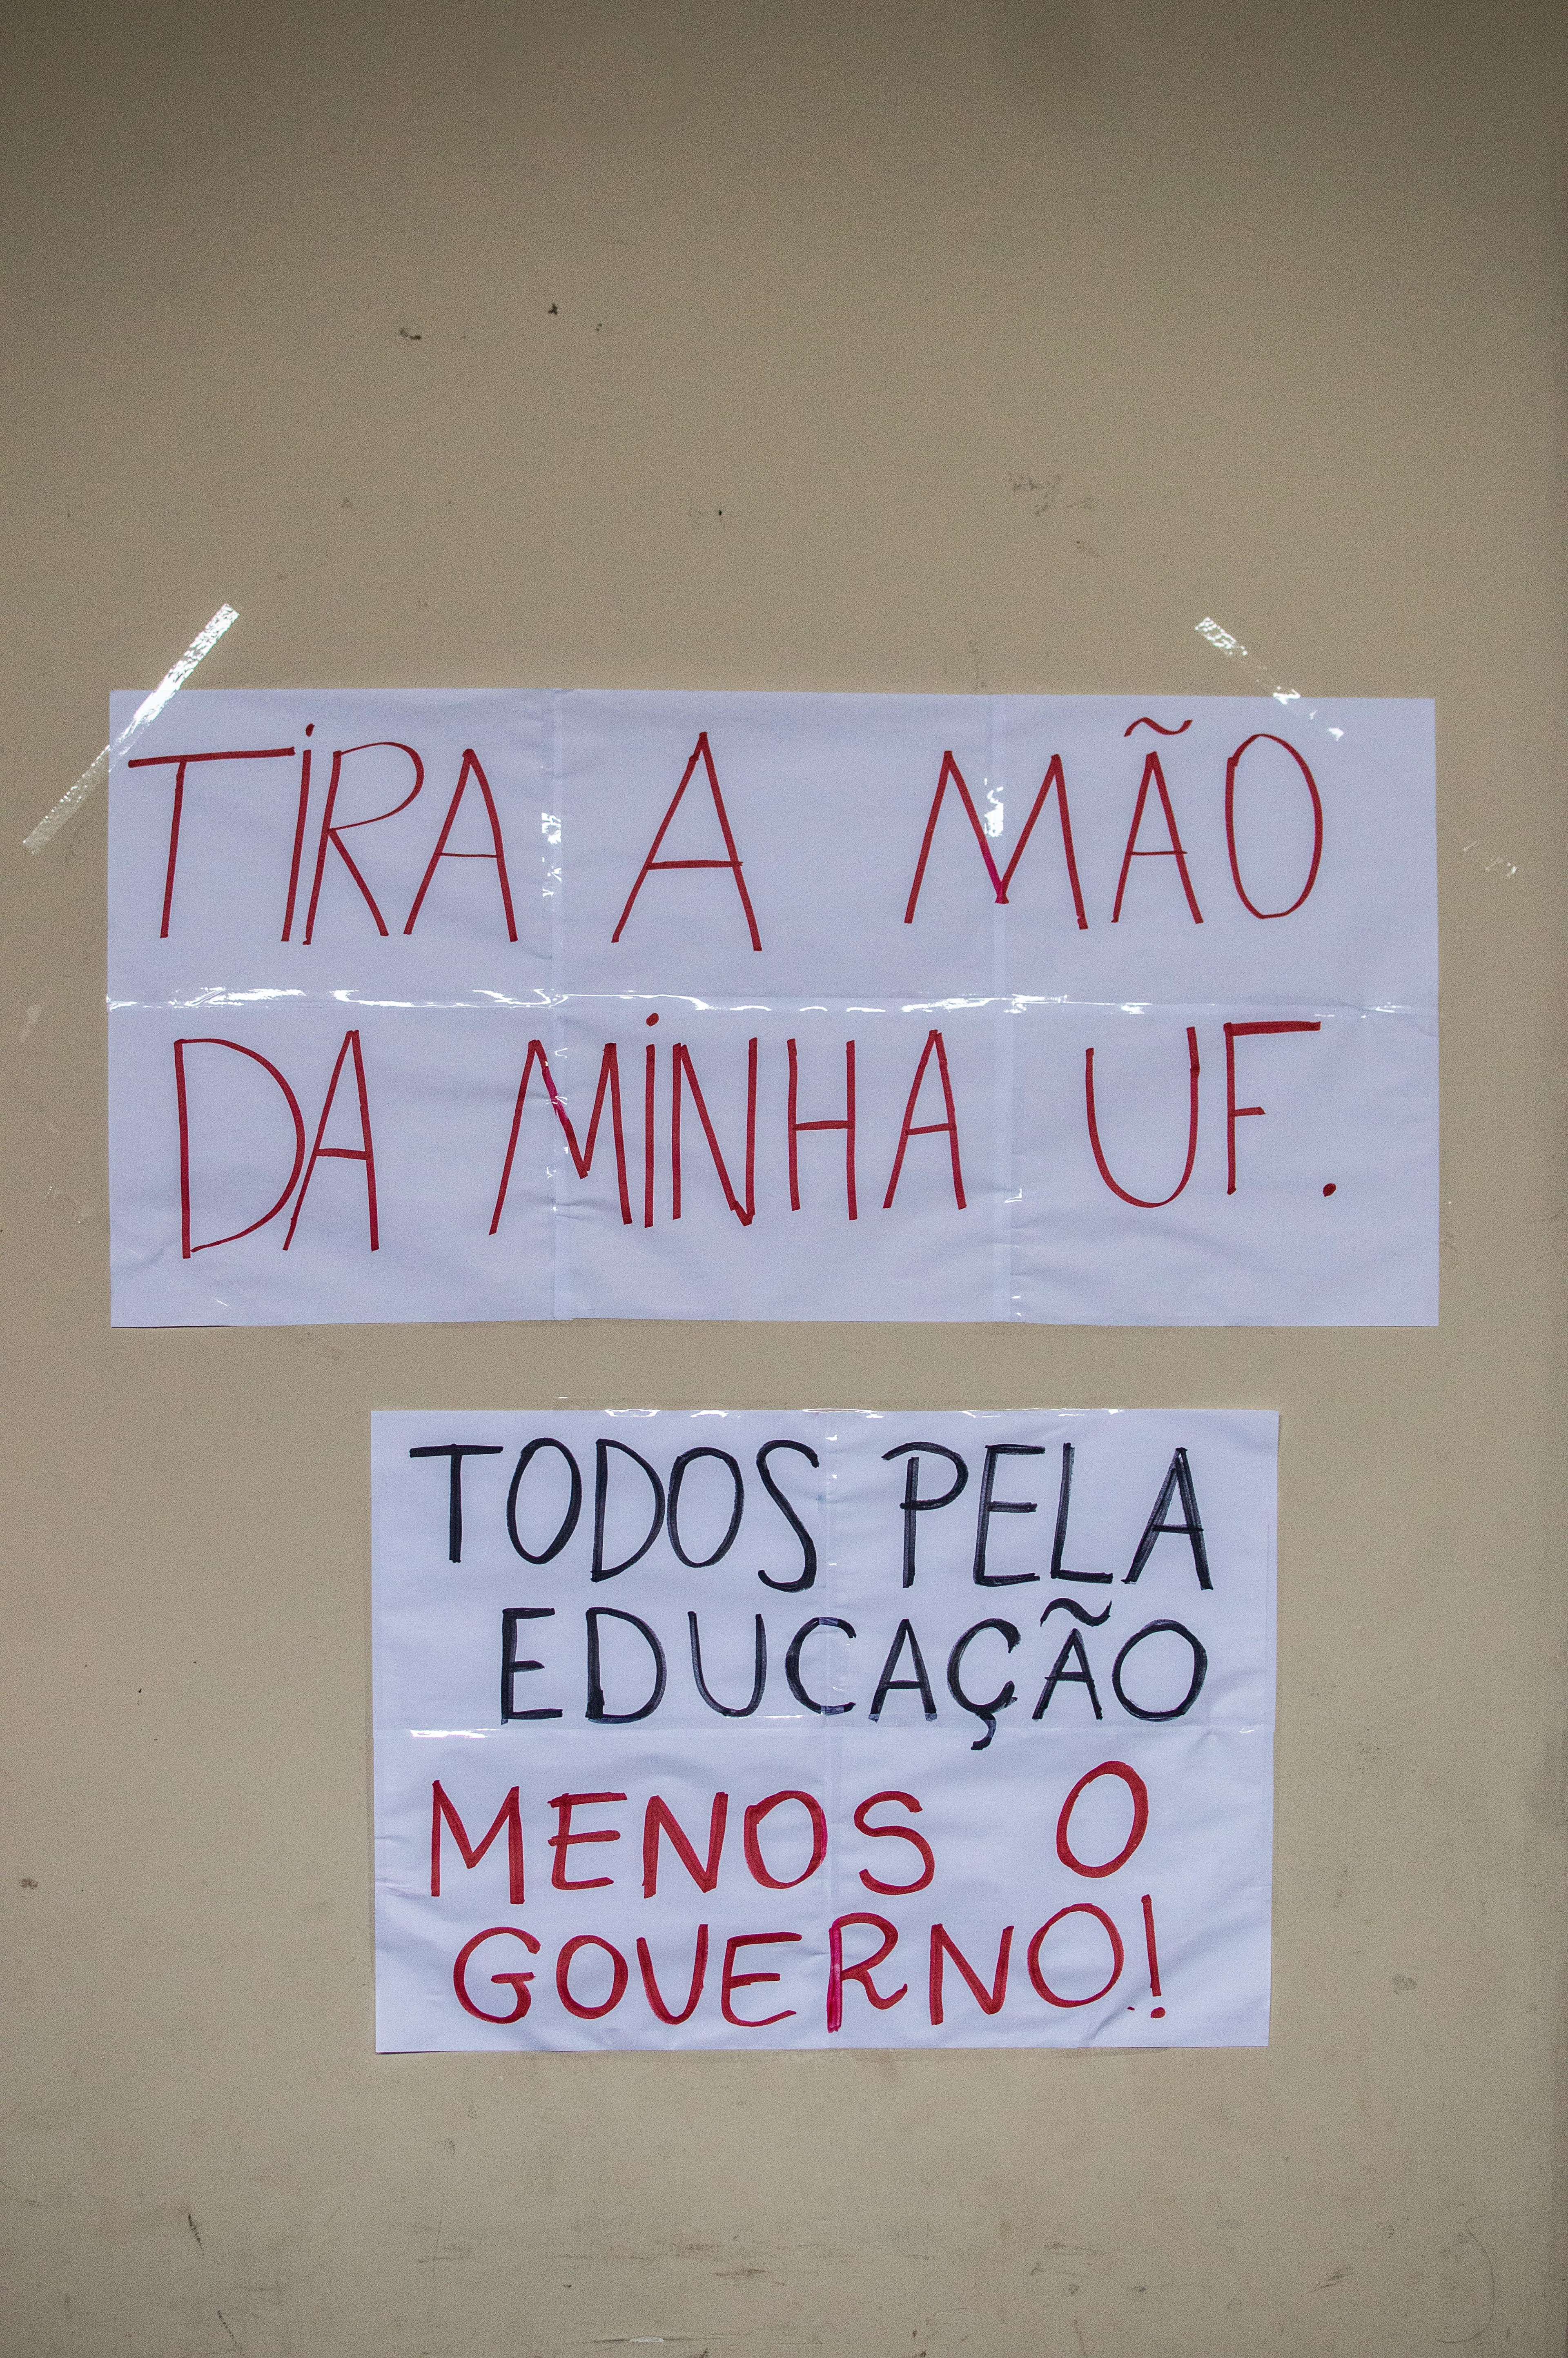 TIRA A MÃO
DA MINHA UF.
TODOS PELA
EDUCAÇÃO
MENOS O
GOVERNO!